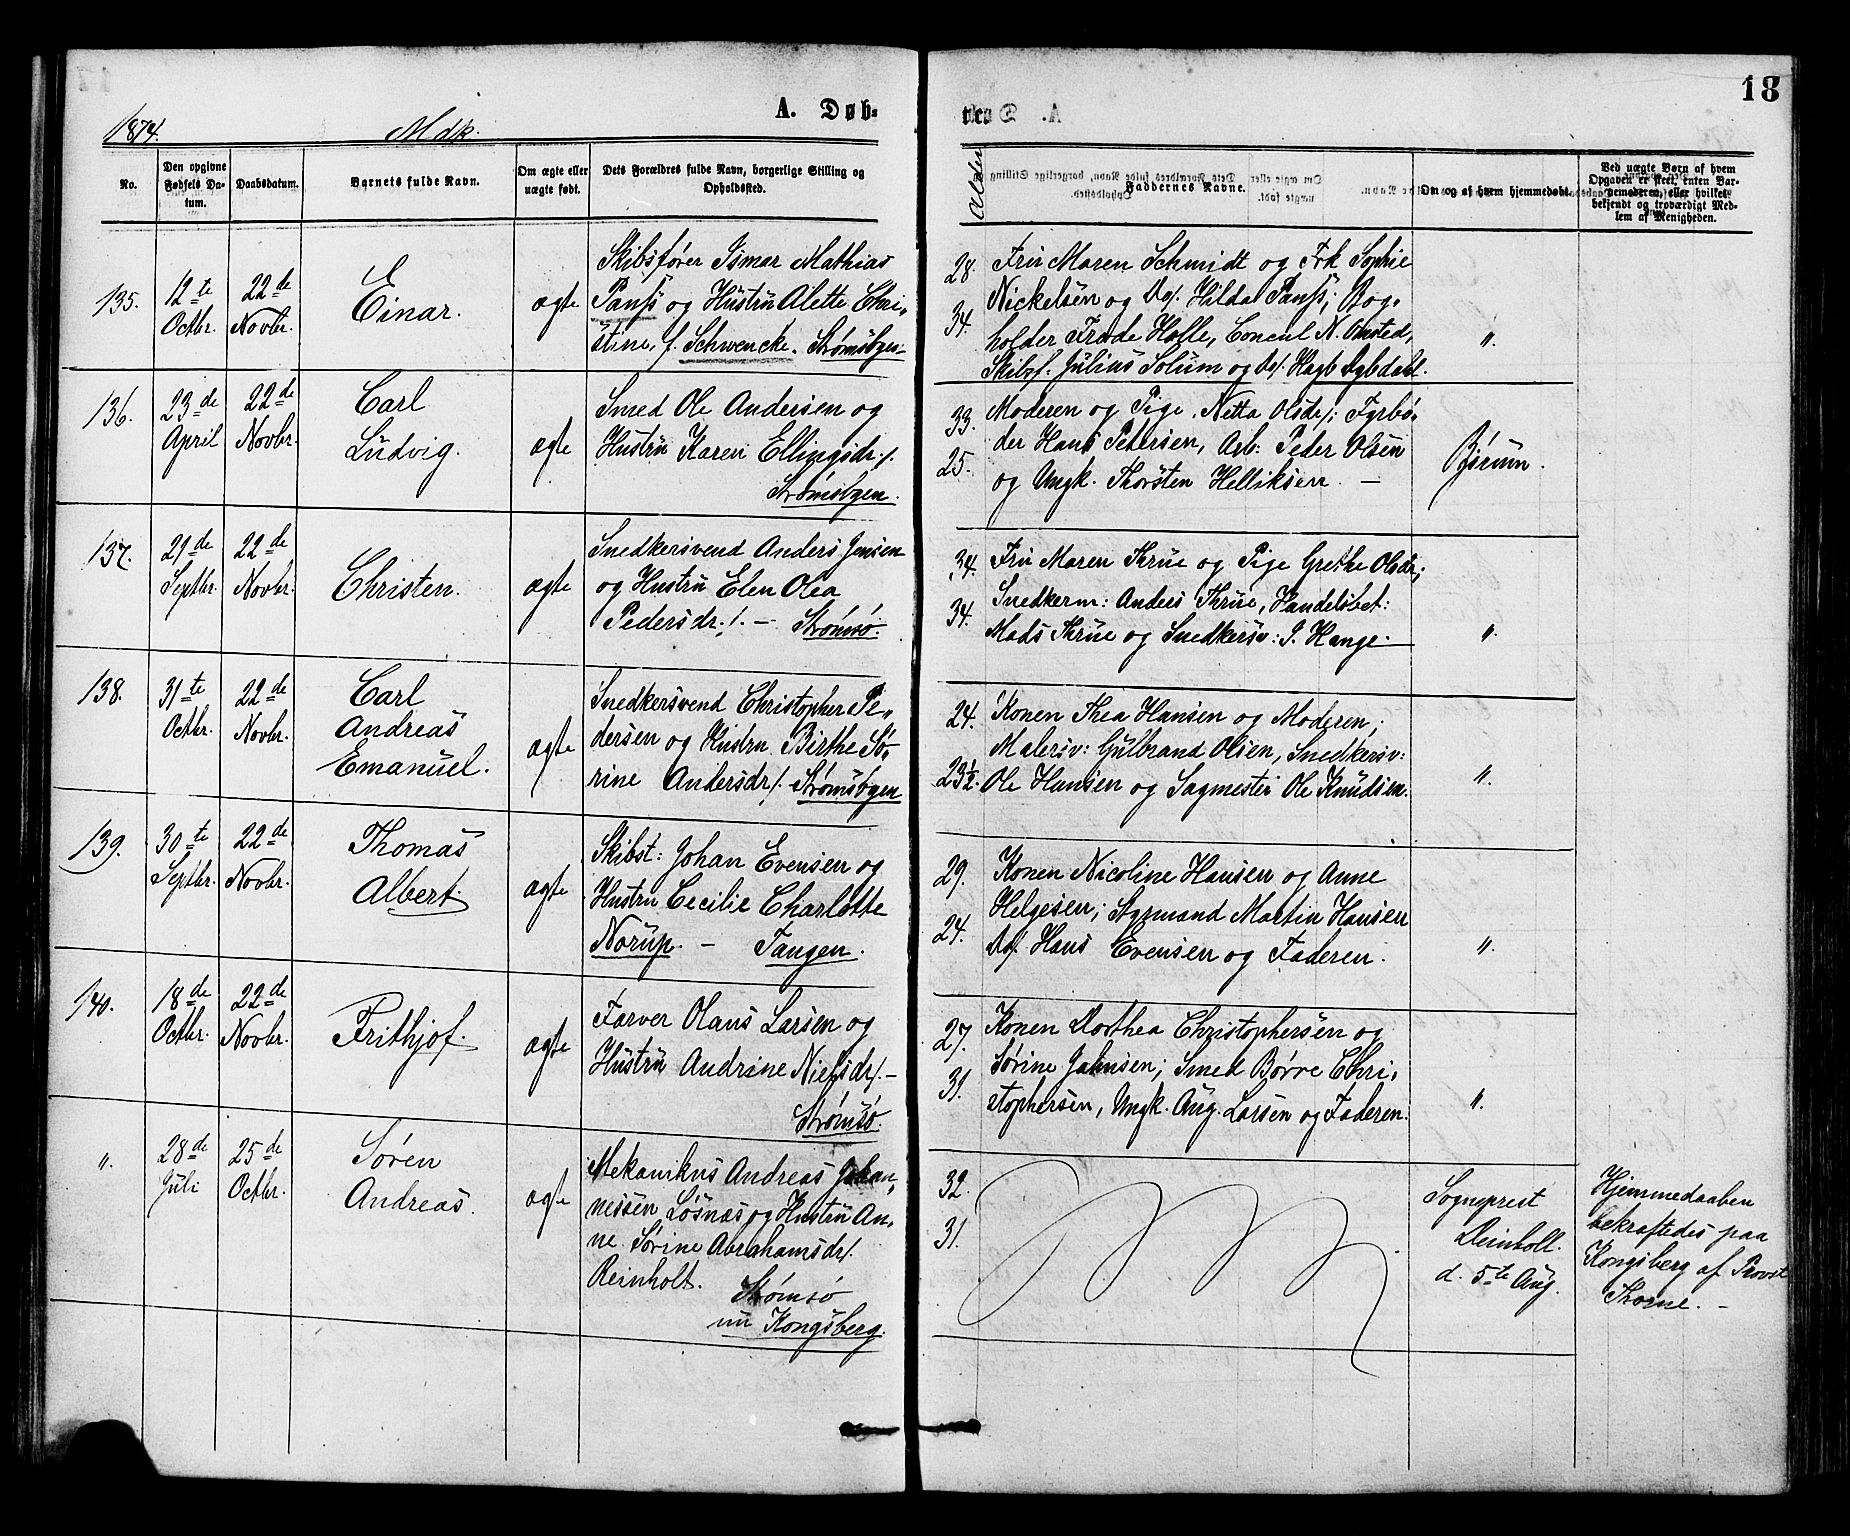 1874.
Mdk.
A. Døb-
No.
Den opgivne Fødsels Datum.
Daabsdatum.
Barnets fulde Navn.
Om ægte eller uægte født.
Dets Forældres fulde Navn, borgerlige Stilling og Opholdssted.
135.
12te Octbr.
22de Novbr.
Einar.
ægte
Skibsfører Ismar Mathias
Panss og Hustru Alette Chri-
stine, f. Schwencke. Strømsbgen.
136.
23de April
22de Novbr.
Carl
Ludvig.
ægte
Smed Ole Andersen og
Hustru Karen Ellingsdr/.
Strømsbgen.
137.
21de Septbr.
22de Novbr.
Christen.
ægte
Snedkersvend Anders Jensen
og Hustru Elen Olea
Pedersdr./. — Strømsø.
138.
31te Octbr.
22de Novbr.
Carl
Andreas
Emanuel.
ægte
Snedkersvend Christopher Pe-
dersen og Hustru Birthe Sø-
rine Andersdr/. Strømsbgen
139.
30te Septbr.
22de Novbr.
Thomas
Albert.
ægte
Skibst: Johan Evensen og
Hustru Cecilie Charlotte
Norup. — Tangen.
140.
18de Octbr.
22de Novbr.
Frithjof.
ægte
Farver Olaus Larsen og
Hustru Andrine Nielsdr/. —
Strømsø.
"
28de Juli
25de Octbr.
Søren
Andreas.
ægte
Mekanikus Andreas Johan-
nessen Løsnæs og Hustru An-
ne Sørine Abrahamsdr/.
Reinholt.
Strømsø
nu Kongsberg.
18
Alder
Faddernes Navne.
Om og af hvem hjemmedøbt.
Ved uægte Børn af hvem
Opgaven er skeet, enten Bar-
nemoderen, eller hvilket
bekjendt og troværdigt Med-
lem af Menigheden.
28.
34.
Fru Maren Schmidt og Frk Sophie
Nickelsen og do/. Hilda Panss; Bog-
holder Frode Holle, Concul N. Omsted,
Skibsf. Julius Solum og do/. Hagb Dybdahl.
"
33.
25.
Moderen og Pige Netta Olsdr/; Fyrbø-
der Hans Petersen, Arb: Peder Olsen
og Ungk. Thorsten Helliksen. —
Bjerum.
34.
34.
Fru Maren Thrue og Pige Grethe Olsdr;
Snedkerm: Anders Thrue, Handelsbet:
Mads Thrue og Snedkersv: J. Hange.
"
24.
23½.
Konen Thea Hansen og Moderen;
Malersv: Gulbrand Olsen, Snedkersv:
Ole Hansen og Sagmester Ole Knudsen.
"
29.
24.
Konen Nicoline Hansen og Anne
Helgesen; Styrmand Martin Hansen
do/. Hans Evensen og Faderen.
"
27.
31.
Konen Dorthea Christophersen og
Sørine Johnsen; Smed Børre Chri-
stophersen, Ungk. Aug. Larsen og Faderen.
"
32.
31.
Sogneprest
Deinboll.
d. 5te Aug.
Hjemmedaaben
bekræftedes paa
Kongsberg af Provst
Thorne. —